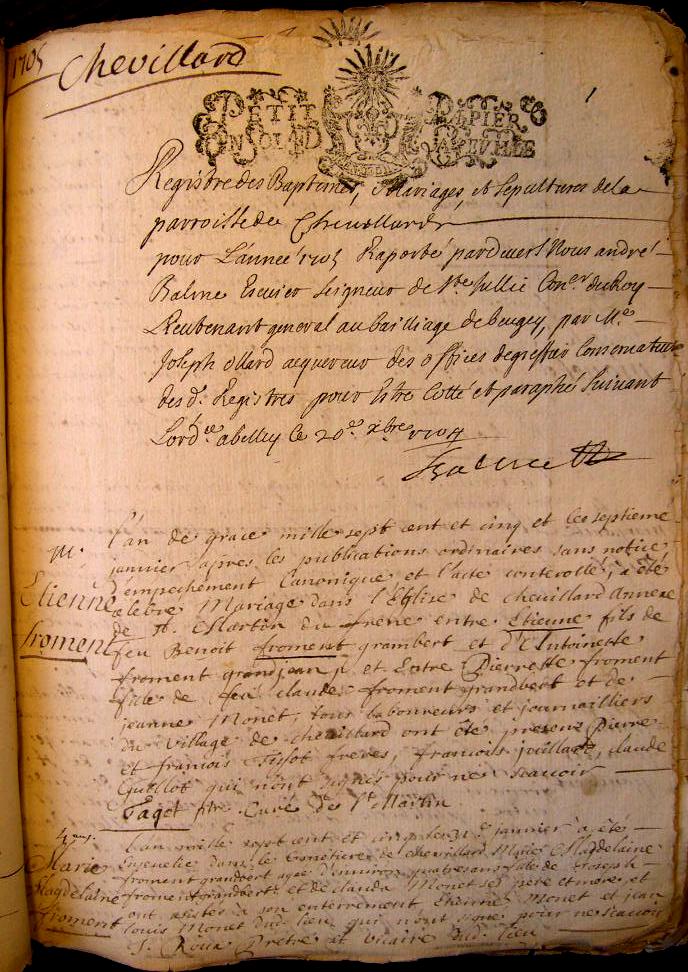 1705 Chevillard
1
PETIT PAPIER
UN SOL LA FEUILLE
Registre des Baptemes, Mariages, et Sepultures de la
parroisse de Chevillard
pour Lannée 1705 Raporté pardevers Nous andré
Balme Escuier Seigneur de Ste Jullie Coner du Roy
Lieutenant general au bailliage de beugey, par Me
Joseph ollard acquereur des offices de greffier Conservateur
des d. Registres pour Estre Cotté et paraphé suivant
Lordce a belley ce 20e xbre 1704
Balme
M.
Etienne
froment
l'an de grace mille sept cent et cinq et le septieme
janvier apres les publications ordinaires sans notice
d'empechement Canonique et l'acte conterollé, a été
celebré Mariage dans l'Eglise de chevillard Annexe
de St. Martin du frene entre Etienne fils de
feu Benoit froment grambert et d'Antoinette
froment gransjean, et Entre Pierrette froment
fille de feu claude froment grandbert et de
jeanne Monet, tous laboureurs et journailliers
du village de chevillard ont été presens Pierre
et francois Tissot freres, francois jouillard, claude
Guillot qui n'ont signés pour ne scavoir
Faget ptre Curé de St Martin
4 ans.
Marie
Magdelaine
froment
L'an mille sept cent et cinq le janvier a été
Ensevelie dans le Cemetiere de chevillard Marie Magdelaine
froment grandbert agée d'environ quatre ans fille de Joseph
froment grandbert et de clauda Monet ses pere et mere, et
ont assisté a son enterrement Etienne Monet et jean
louis Monet dud. lieu qui n'ont signé pour ne scavoir
J. Roux Pretre et vicaire dud. lieu